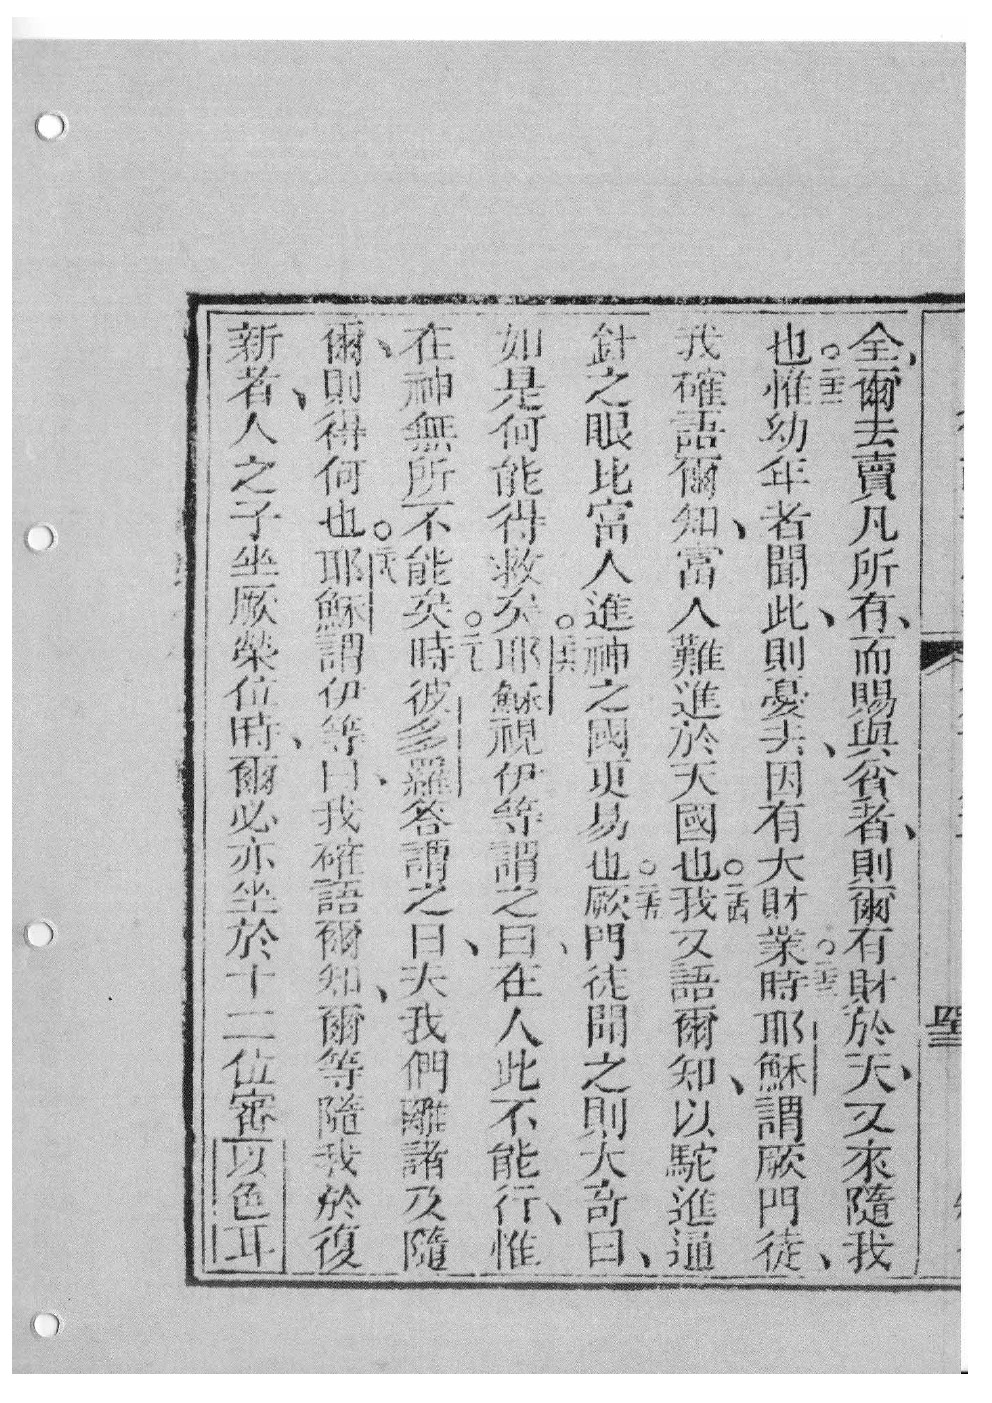 全、爾去賣凡所有、而賜與貧者、則爾有財於天、又來隨我
也。二十二惟幼年者聞此、則憂去、因有大財業。二十三時耶穌謂厥門徒、
我確語爾知、富人難進於天國也。二十四我又語爾知、以駝進通
針之眼比富人進神之國更易也。二十五厥門徒聞之則大奇曰、
如是何能得救矣。二十六耶穌視伊等謂之曰、在人此不能行、惟
在神無所不能矣。二十七時彼多羅答謂之曰、夫我們離諸及隨
爾、則得何也。二十八耶穌謂伊等曰、我確語爾知、爾等隨我於復
新者、人之子坐厥榮位時、爾必亦坐於十二位審以色耳